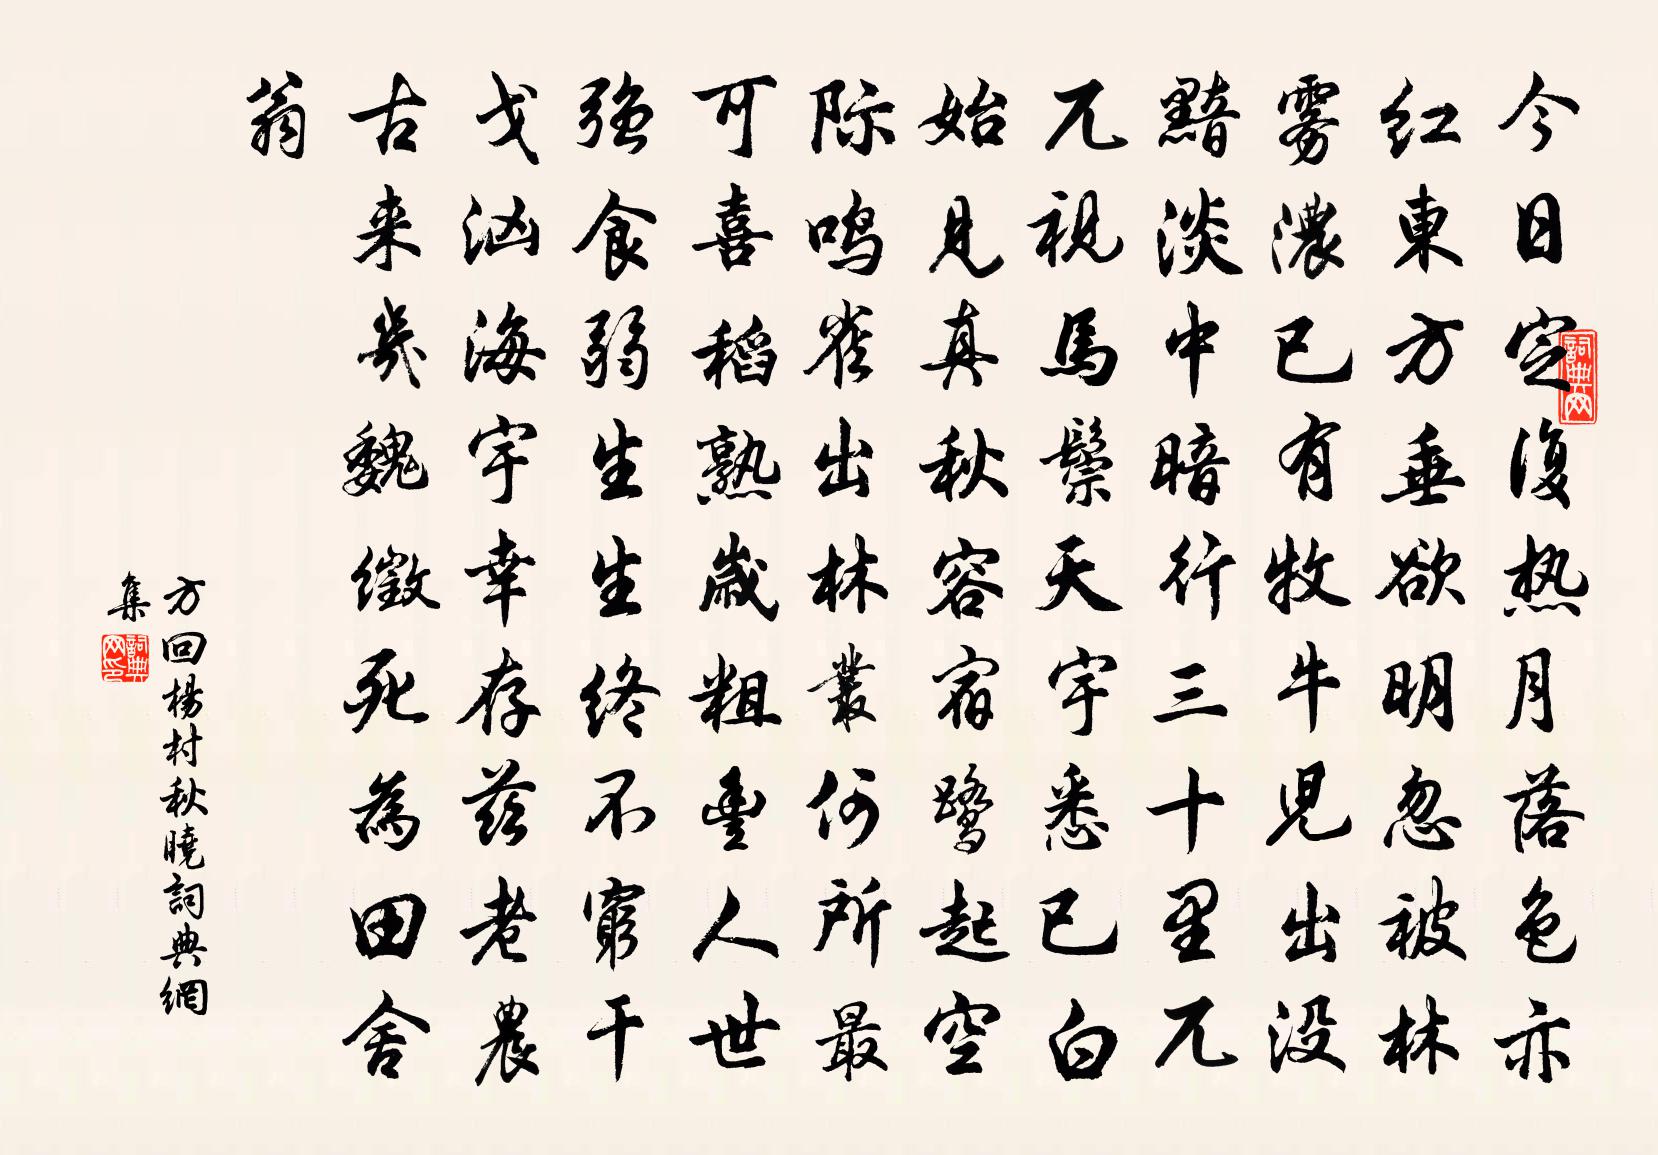 今日定復热月落色亦
红東方垂欲明忽被林
雾濃已有牧牛児出没
黯淡中暗行三十里兀
兀視馬鬃天宇悉已白
始見真秋容宿鹭起空
际鸣雀出林叢何所最
可喜稻熟歲粗豊人世
强食弱生生终不窮干
戈汹海宇幸存兹老農
古来幾魏徵死為田舍
翁
方回楊村秋曉詞典網
集
詞典网
詞典网印